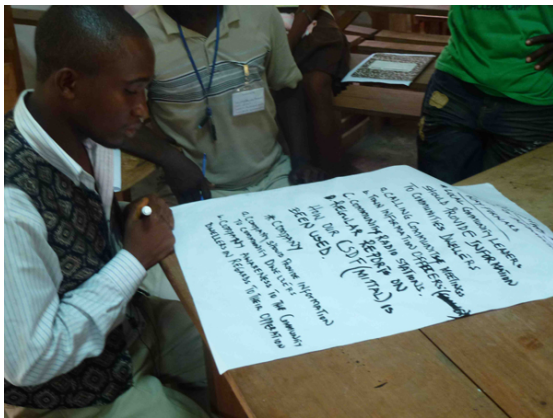 * LOCAL COMMUNITY LEADERS
SHOULD PROVIDE INFORMATION
TO COMMUNITIES DWELLERS
a. CALLING COMMUNITY MEETINGS
b. TOWN INFORMATION OFFICERS
C. COMMUNITY RADIO STATIONS.
REGULAR REPORTS ON
HOW OUR CSDF (MITTAL) IS
BEEN USED.
* COMPANY
a. COMPANY SHOULD PROVIDE INFORMATION
TO COMMUNITY DWELLERS
b. COMPANY AWARENESS TO THE COMMUNITY
DWELLERS IN REGARDS TO THEIR OPERATION